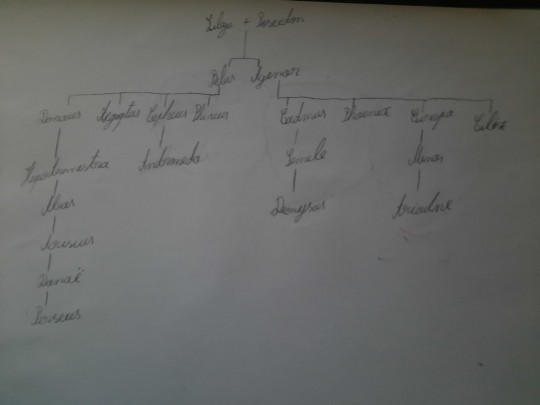 Libya + Poseidon
Belus Agenor
Danaus Aegyptus Cepheus Phineus Cadmus Phoenix Europa Cilix
Hypermnestra Andromeda Semele Minos
Abas Dionysos Ariadne
Acrisius
Danaë
Perseus